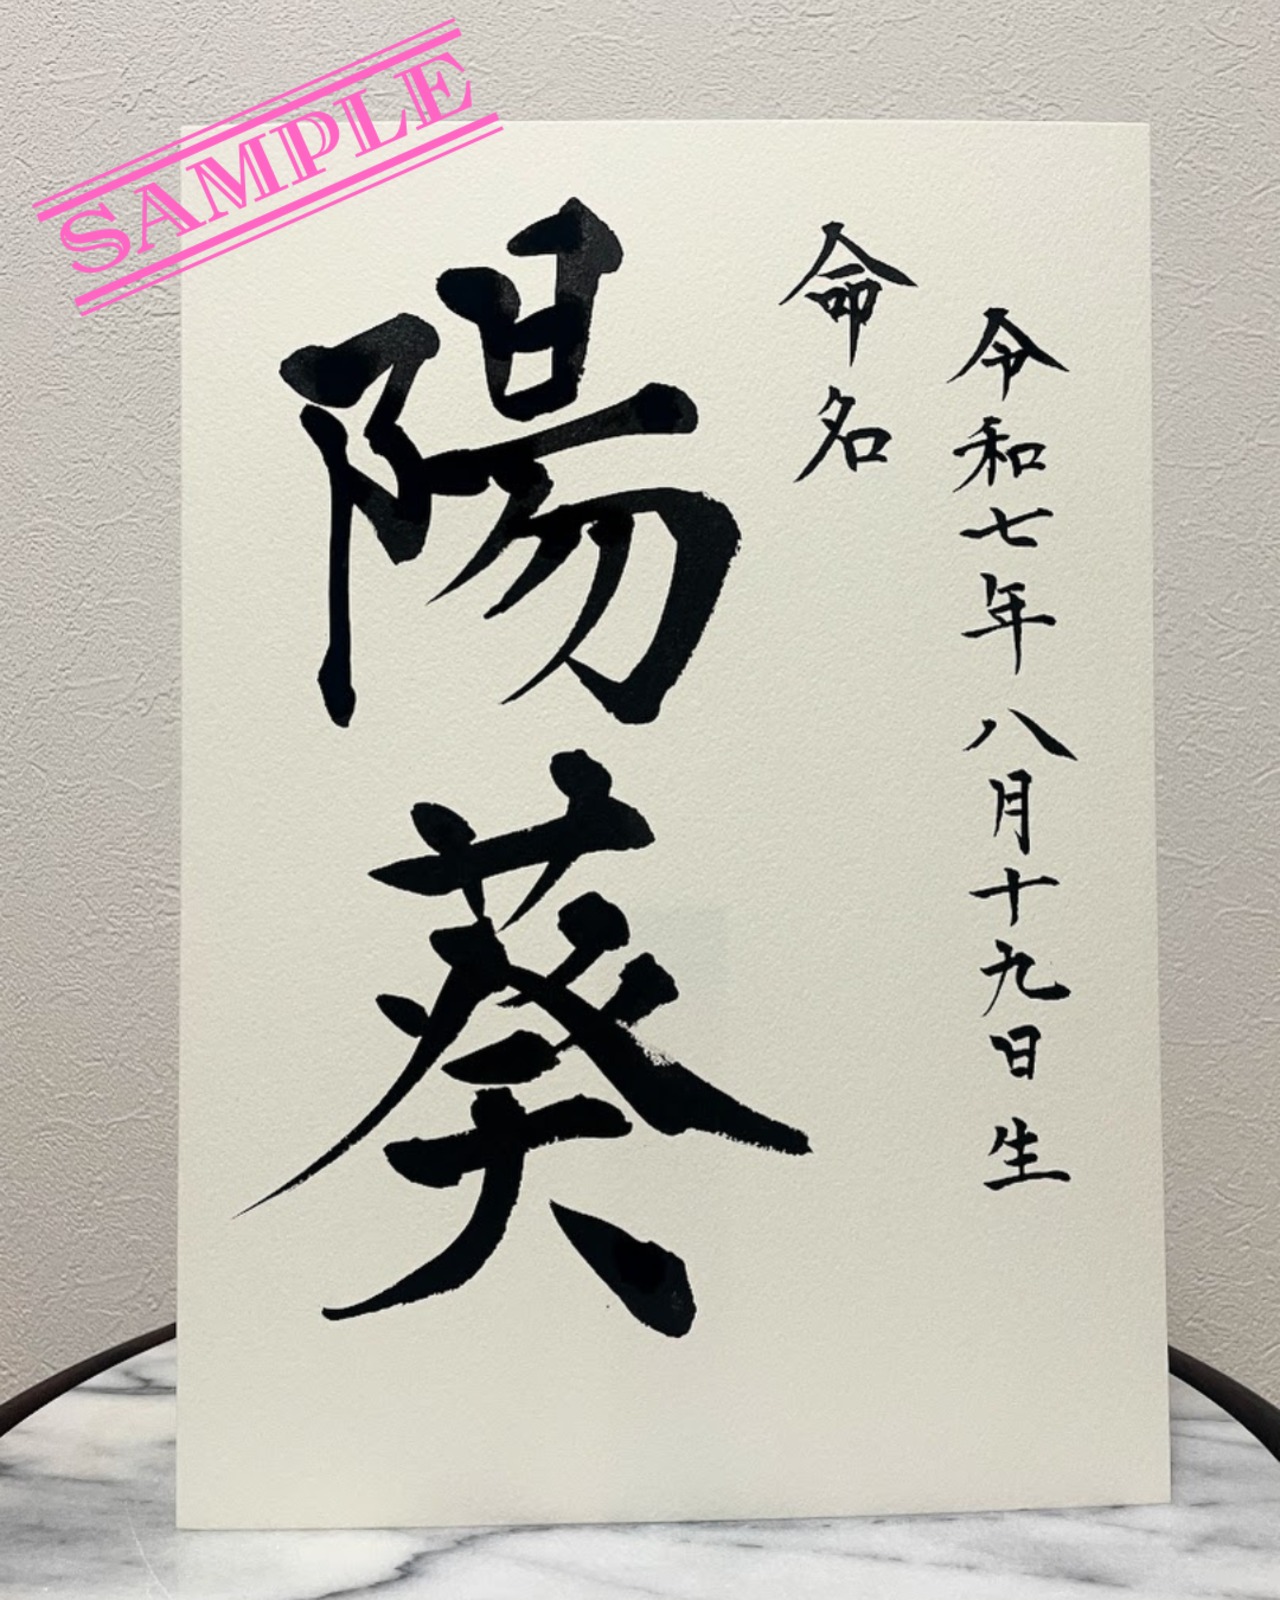 SAMPLE
令和七年 八月十九日 生
命名
陽葵